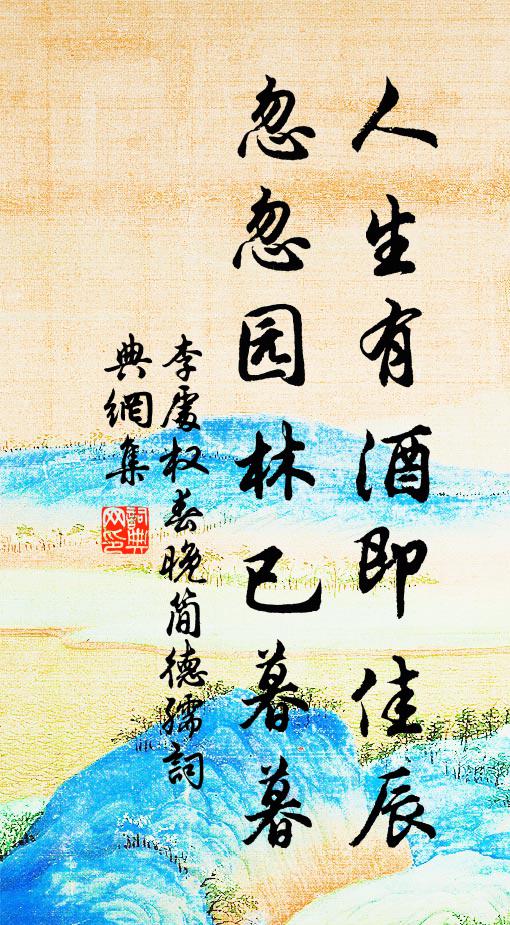 人生有酒即佳辰
忽忽园林已暮暮
李處权春晚简德孺詞
典網集
詞典
网印